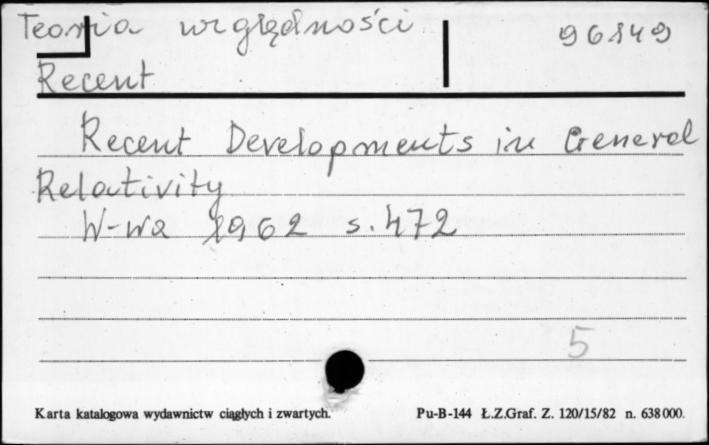 Teoria względności 96849
Recent
Recent Developments in General
Relativity
W-wa 1962 s. 472
5
Karta katalogowa wydawnictw ciągłych i zwartych. Pu-B-144 Ł.Z.Graf. Z. 120/15/82 n. 638000.